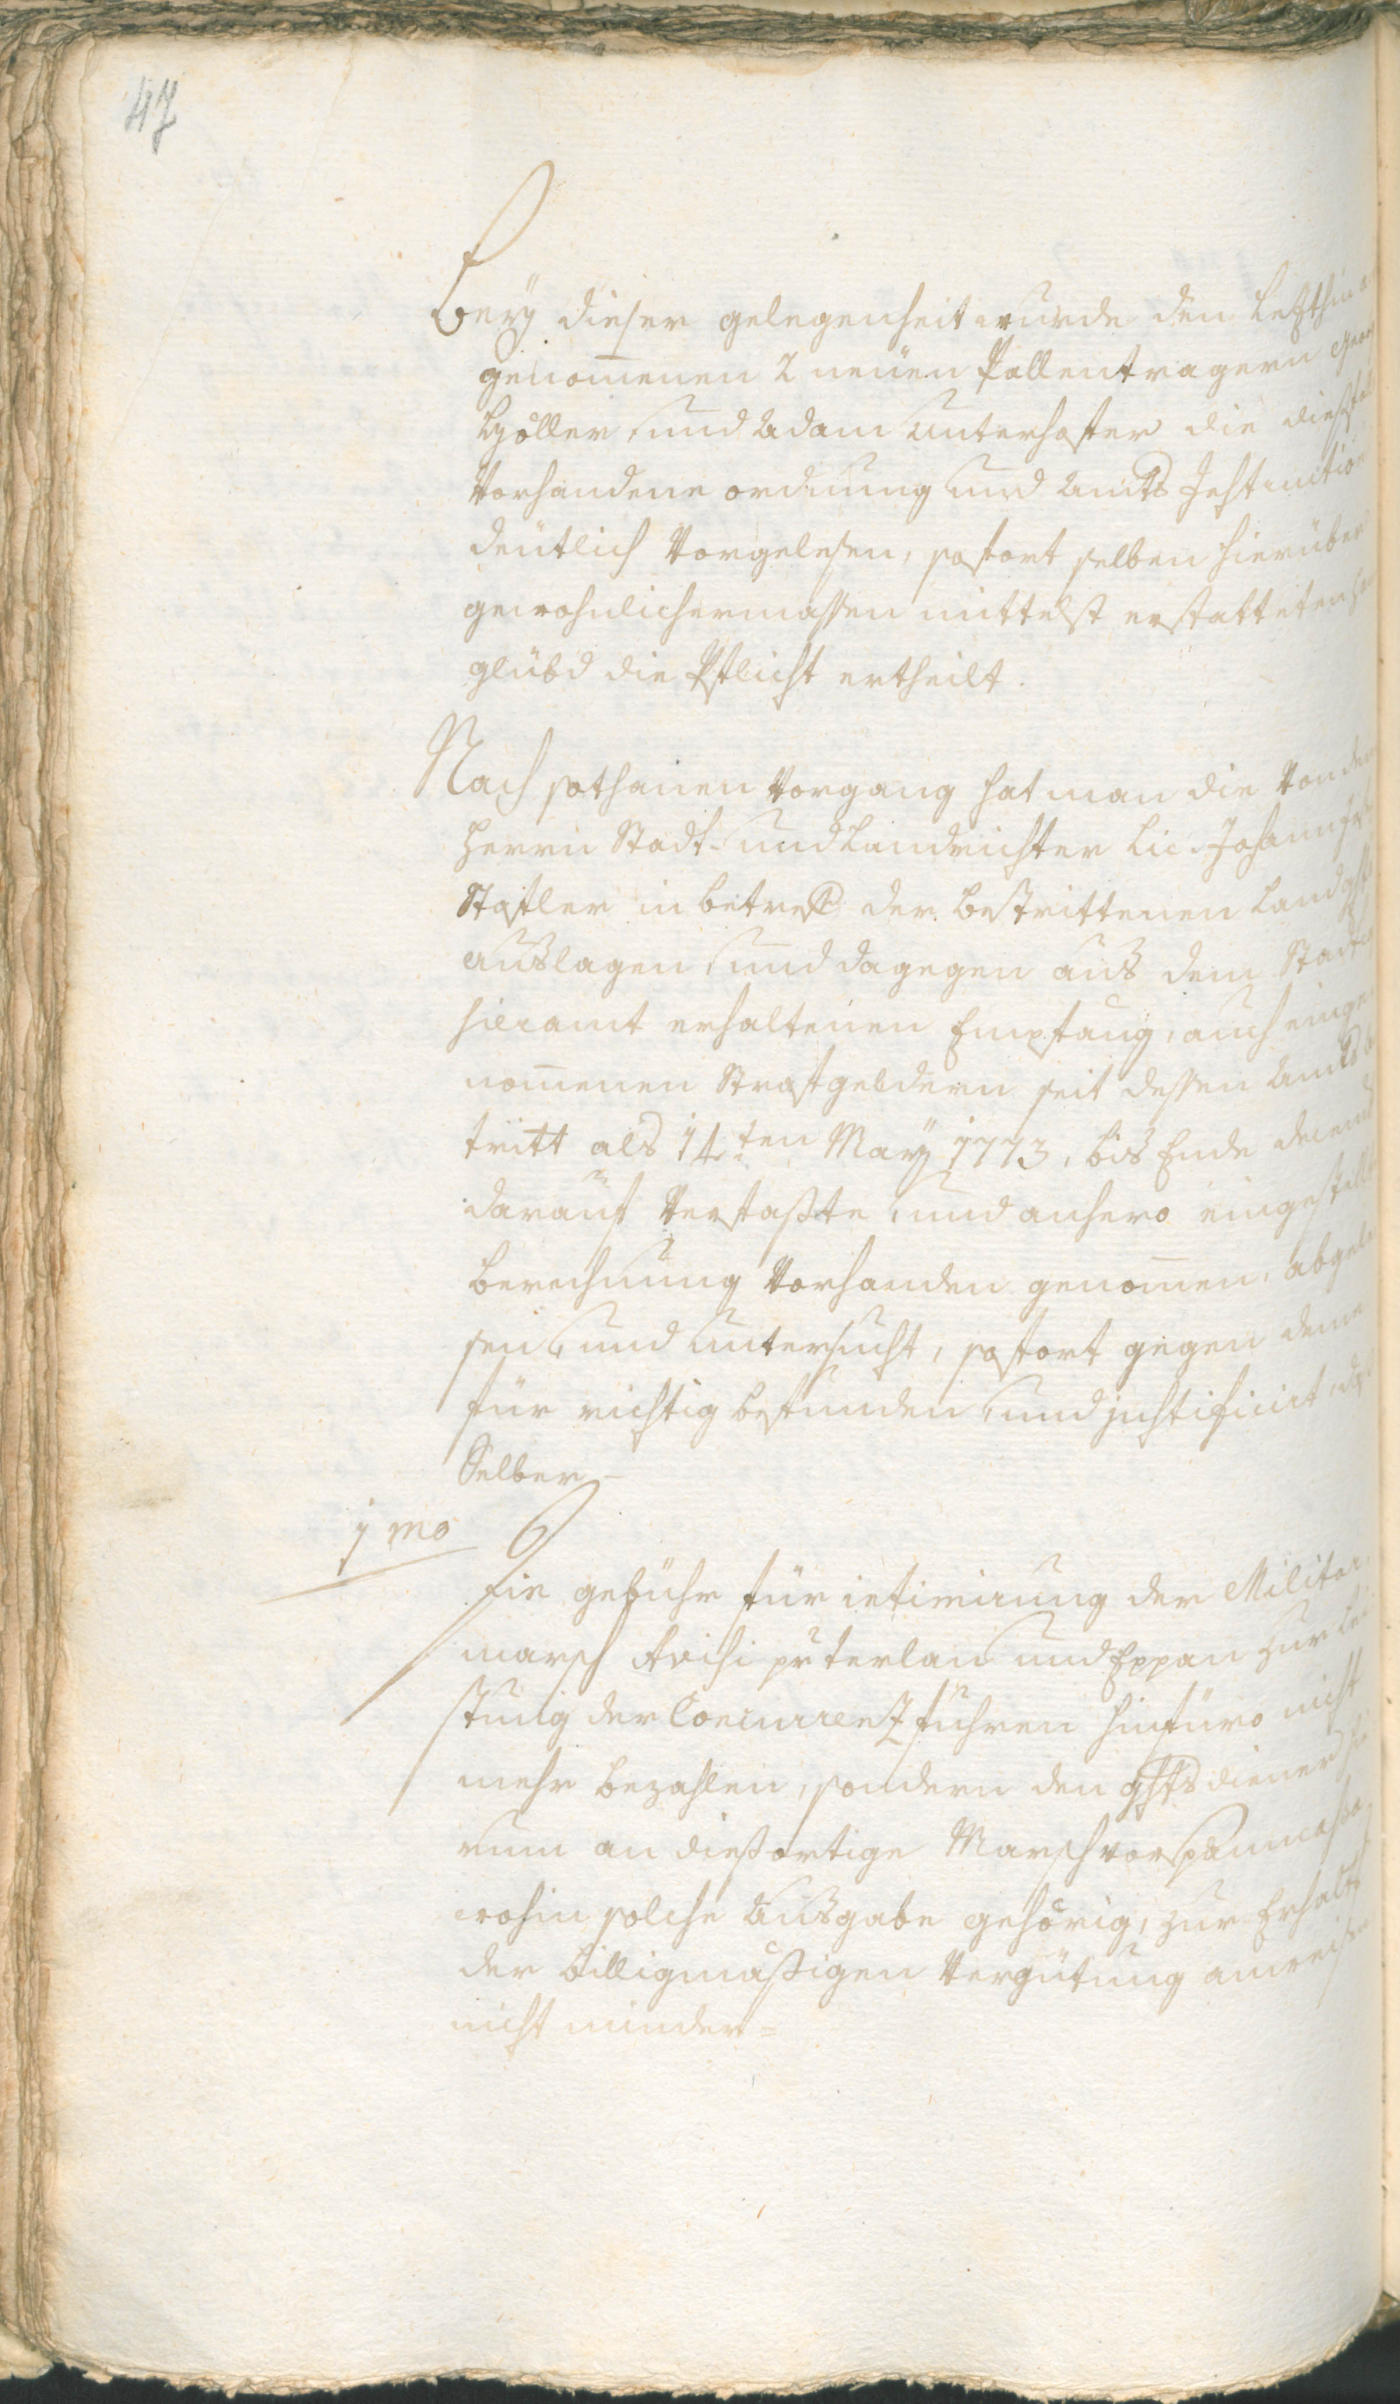 47
Bey dieser gelegenheit wurde den letzthin
genom̅enen 2 neüen Pallentragern Georg
Göller, und Adam Unterhofer die dießfal
Vorhandene ordnung und Amts Instruction
deütlich Vorgelesen, sofort selben hierüber
gewohnlichermassen mittelst erstatteten
glübd die Pflicht ertheilt.
Nach sothanen Vorgang hat man die Von dem
Herrn Stadt- und Landrichter Lic. Johann
Stafler in betreff der bestrittenen Landgts
auslagen, und dagegen aus dem Stadt
hieramt erhaltenen Empfang, auch einge
nom̅enen Strafgeldern seit dessen Amts
tritt als 14ten May 1773, bis Ende decemb
darauf Verfaßte, und anhero eingestellte
berechnung Vorhanden genom̅en, abgele
sen, und untersucht, sofort gegen deme
für richtig befunden, und justificirt, daß
Selber -
1mo
Die gebühr für intimirung der Militar
marsch Avisi pr terlan und Eppan zur Lei
stung der Concurrenz führen hinfüro nicht
mehr bezahlen, sondern den ghtsdiener
rum an diesortige Marschvorspanncassa,
wohin solche Ausgabe gehörig, zur Erhalt
der billigmäßigen Vergütung anweisen
nicht minder=